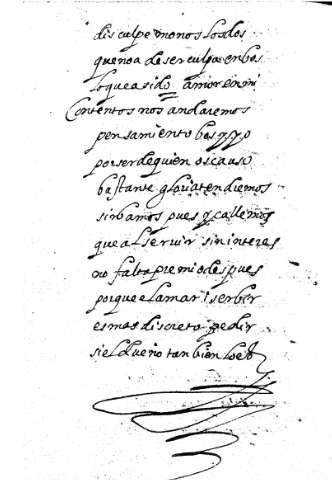 disculpemonos los dos
que no a de ser culpa en bos
lo que a sido amor en mi
Contentos nos andaremos
pensamiento bos y yo
por ser de quien os causo
bastante gloria tendremos
sirbamos pues y callemos
que al servir sin interes
no falta premio despues
porque el amar i serbir
es mas discreto pedir
si el dueño tan bien lo es